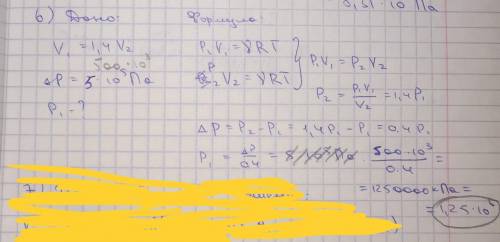 0,51 · 10 Па
6) Дано:
Формула:
V₁ = 1,4 V₂
500·10³
ΔP = 5 · 10⁵ Па
P₁ - ?
P₁V₁ = γRT
P₂V₂ = γRT
P₁V₁ = P₂V₂
P₂ = P₁V₁/V₂ = 1,4P₁
ΔP = P₂ - P₁ = 1,4P₁ - P₁ = 0.4P₁
P₁ = ΔP/0.4 = 500·10³/0.4 =
= 1250000кПа =
= 1,25·10⁶